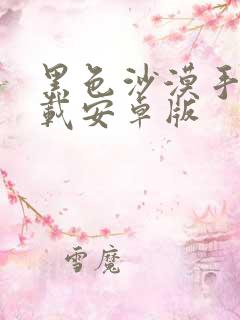 黑色沙漠手
载安卓版
雪魔